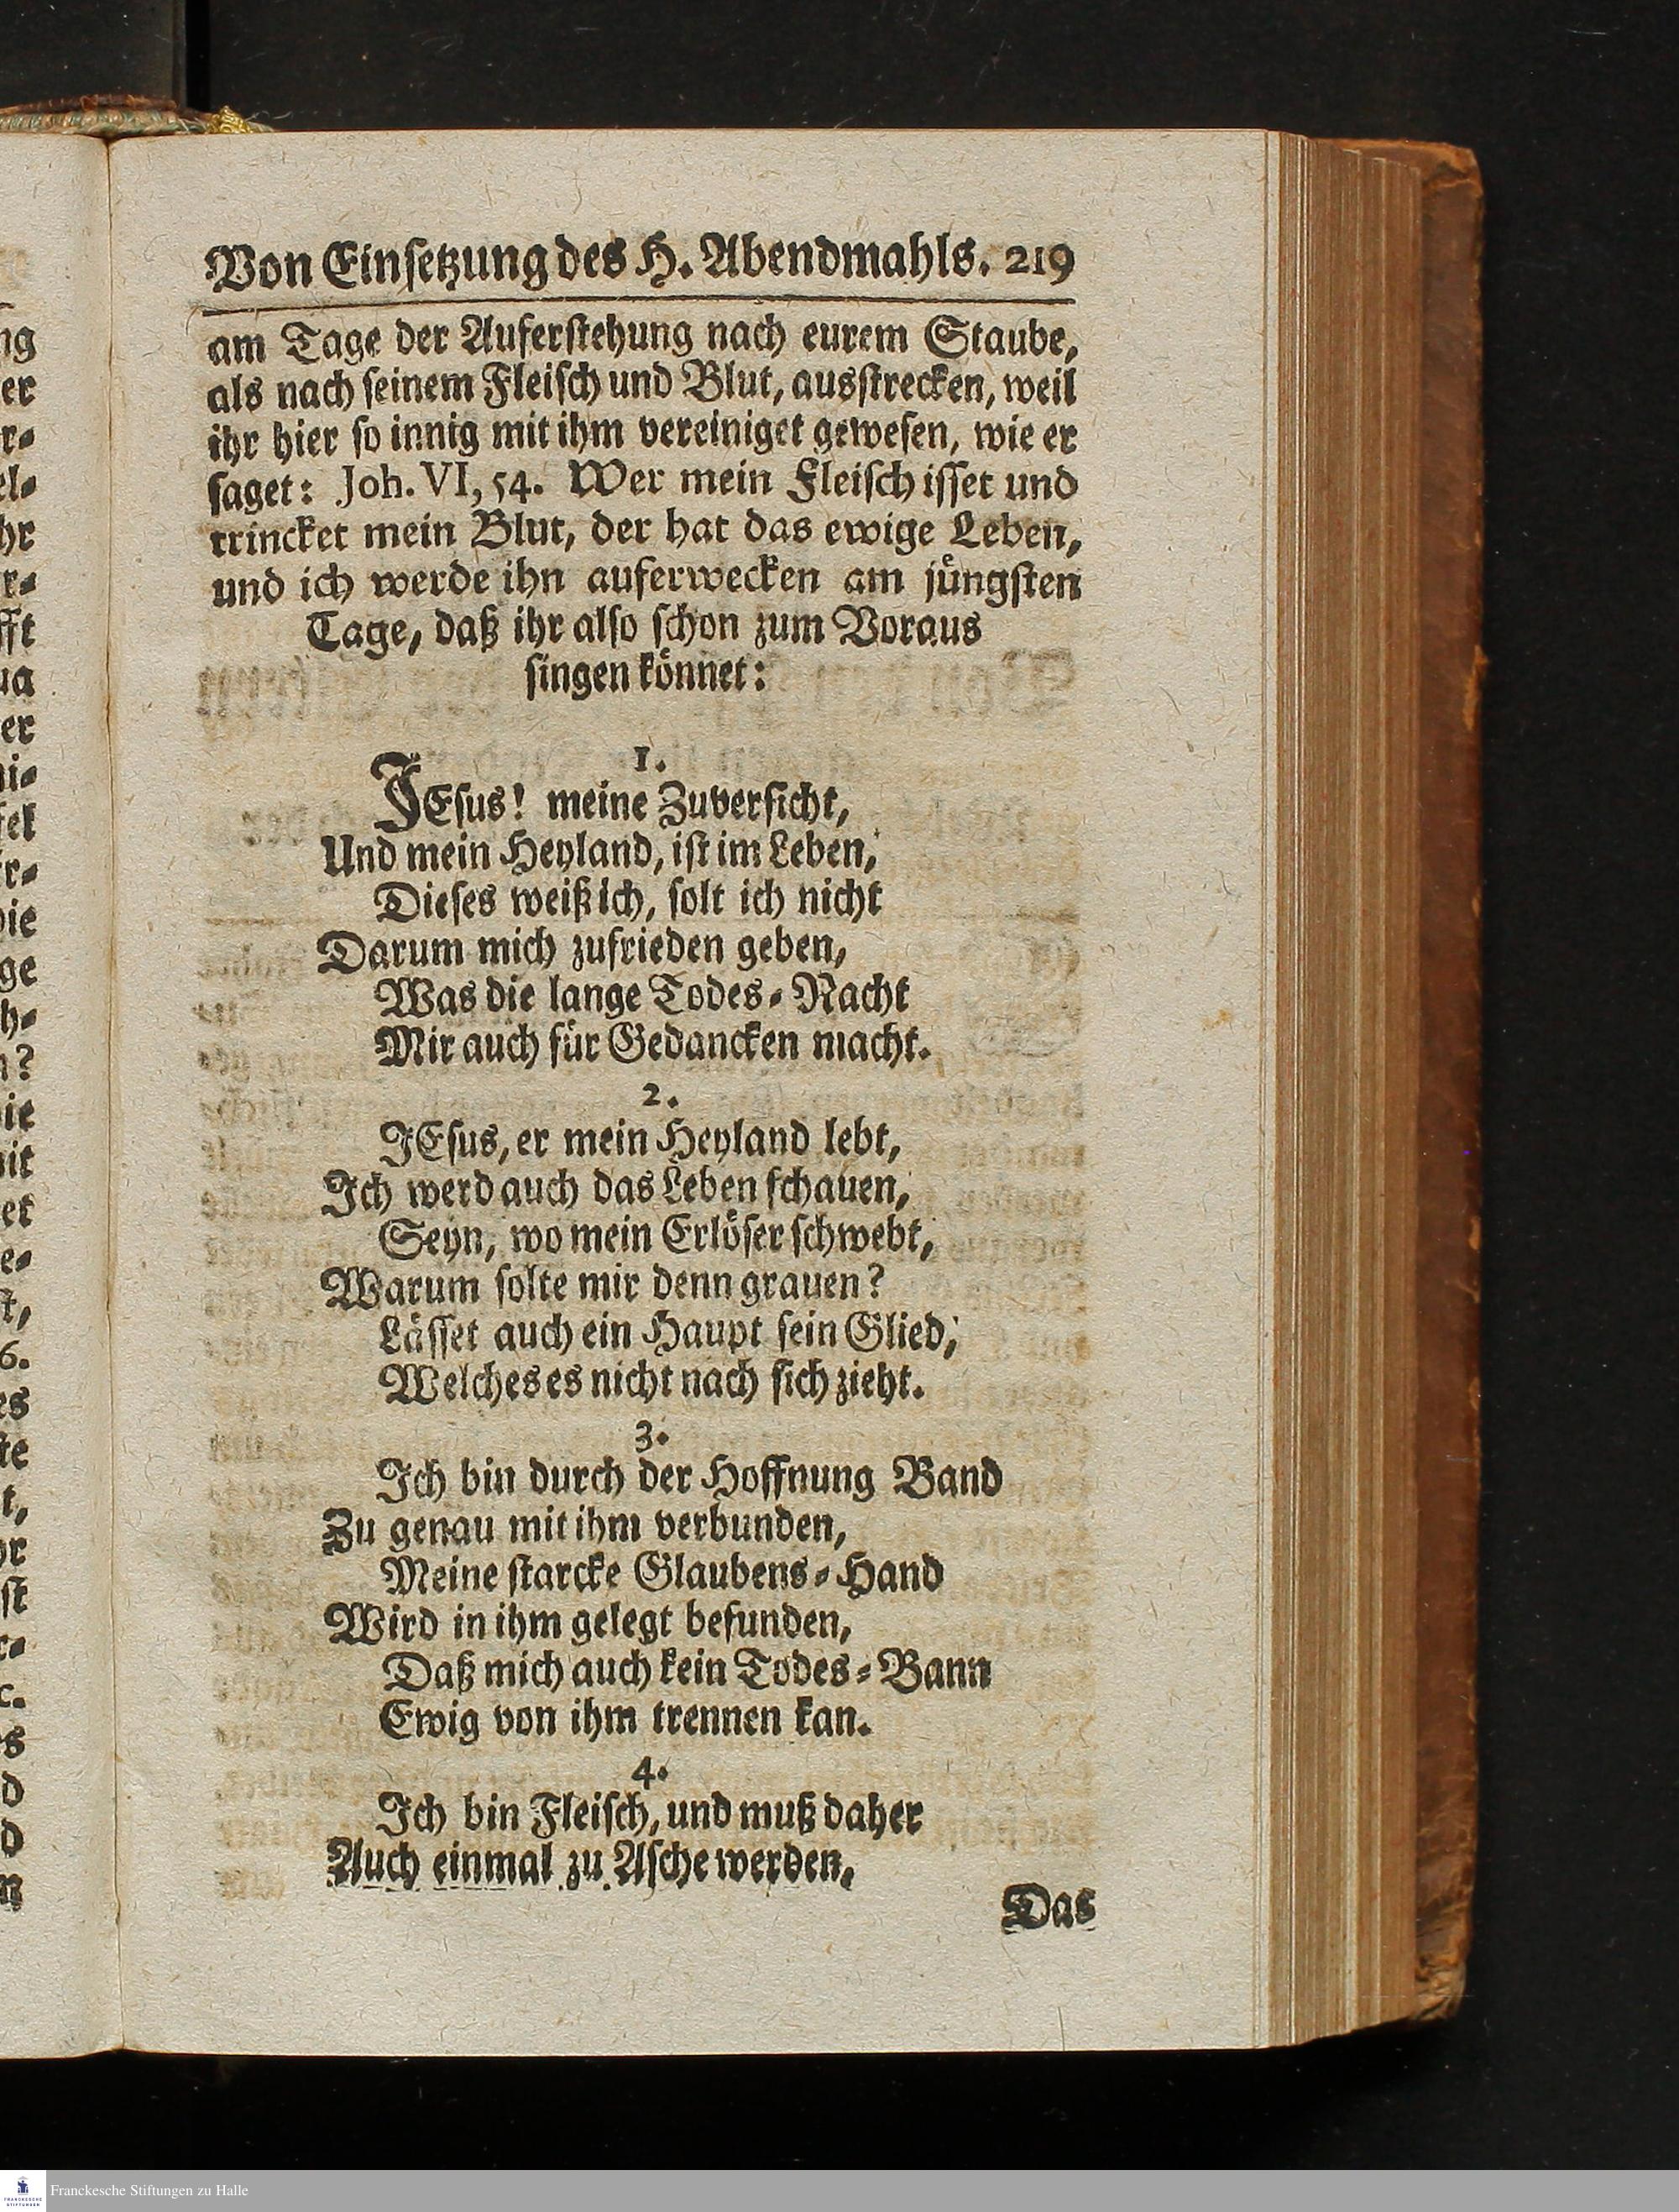 Von Einsetzung des H. Abendmahls. 219
am Tage der Auferstehung nach eurem Staube,
als nach seinem Fleisch und Blut, ausstrecken, weil
ihr hier so innig mit ihm vereiniget gewesen, wie er
saget: Joh. VI, 54. Wer mein Fleisch isset und
trincket mein Blut, der hat das ewige Leben,
und ich werde ihn auferwecken am jüngsten
Tage, daß ihr also schon zum Voraus
singen könnet:
1.
JEsus! meine Zuversicht,
Und mein Heyland, ist im Leben,
Dieses weiß ich, solt ich nicht
Darum mich zufrieden geben,
Was die lange Todes-Nacht
Mir auch für Gedancken macht.
2.
JEsus, er mein Heyland lebt,
Ich werd auch das Leben schauen,
Seyn, wo mein Erlöser schwebt,
Warum solte mir denn grauen?
Lässet auch ein Haupt sein Glied,
Welches es nicht nach sich zieht.
3.
Ich bin durch der Hoffnung Band
Zu genau mit ihm verbunden,
Meine starcke Glaubens-Hand
Wird in ihm gelegt befunden,
Daß mich auch kein Todes-Bann
Ewig von ihm trennen kan.
4.
Ich bin Fleisch, und muß daher
Auch einmal zu Asche werden,
Das
Franckesche Stiftungen zu Halle